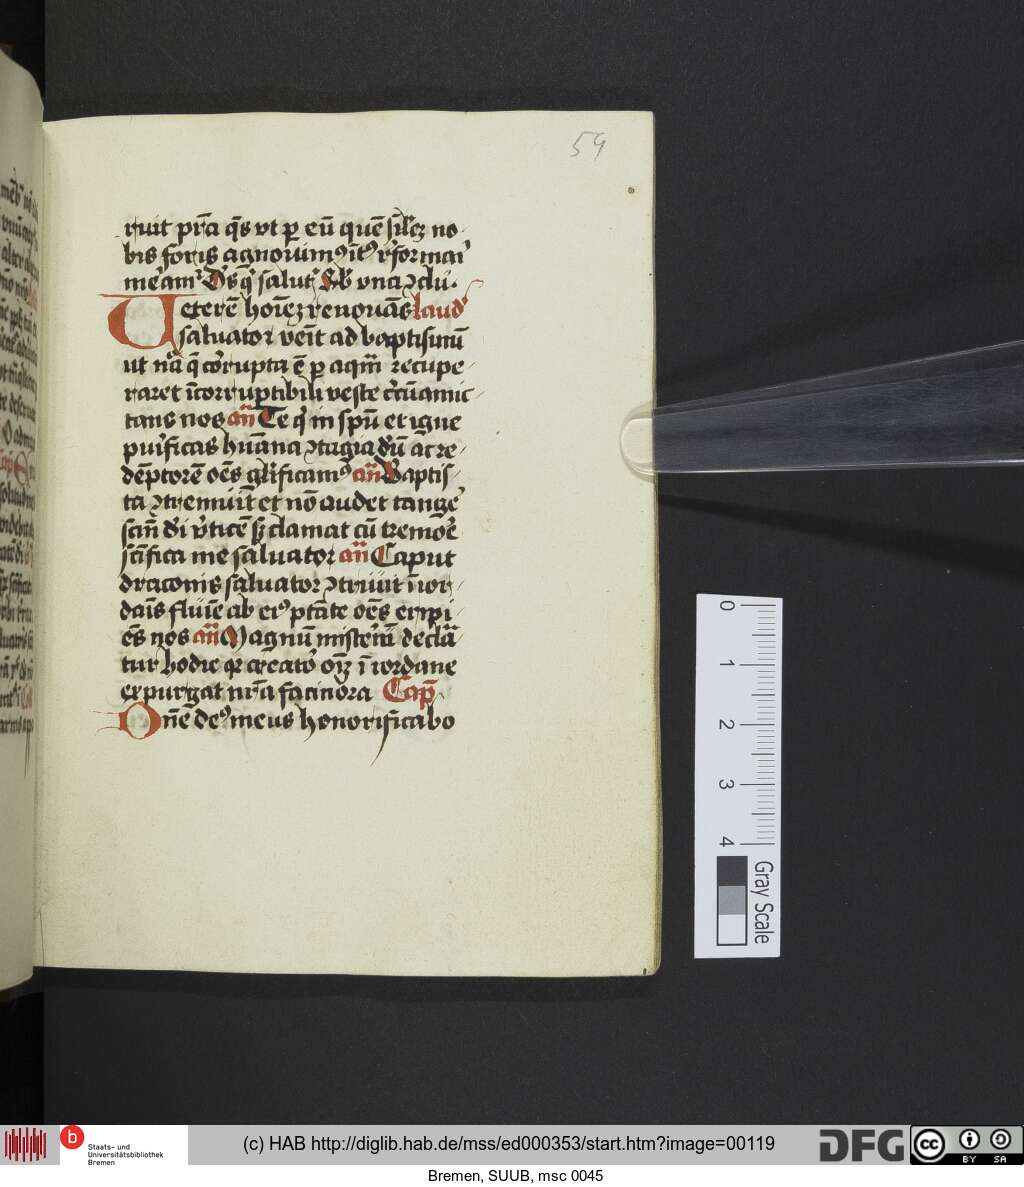 59
ruit p̄ra q̄s vt p eū quē sīlēꝫ no
bis foris agnouimꝰ ītꝰ rʼformarʼ
meʼamʼ Dʼs qʼ salutʼ Sb vna ꝯclu.
Ueterē hoīeꝫ renouās laudʼ
saluator veīt ad baptismū
ut nʼā q̄ corʼrupta ē p aqm̄ recupe
raret īcorruptibili veste cʼcūamic
tans nos añ Te qʼ in spū et igne
purʼificas hūana ꝯtagia dʼū ac re
dēptorē oēs gl̄ificamꝰ añ Baptis
ta ꝯtremuīt et nō audet tangeʼ
scm̄ dʼi vʼticē sꝫ clamat cū tremoēʼ
scīfica me saluator añ Caput
draconis saluator ꝯtriuit ī ior
daīs fluīe ab eiꝰ ptāte oēs eripi
ēs nos añ Magnū misterīū declā
tur hodie qꝛ creatoʼ oīꝫ ī iordane
expurgat nr̄a facinora Cap̄
Dn̄e deꝰ meus honorificabo
0
1
2
3
4
Gray Scale
b
Staats- und
Universitätsbibliothek
Bremen
(c) HAB http://diglib.hab.de/mss/ed000353/start.htm?image=00119
DFG
cc BY SA
Bremen, SUUB, msc 0045